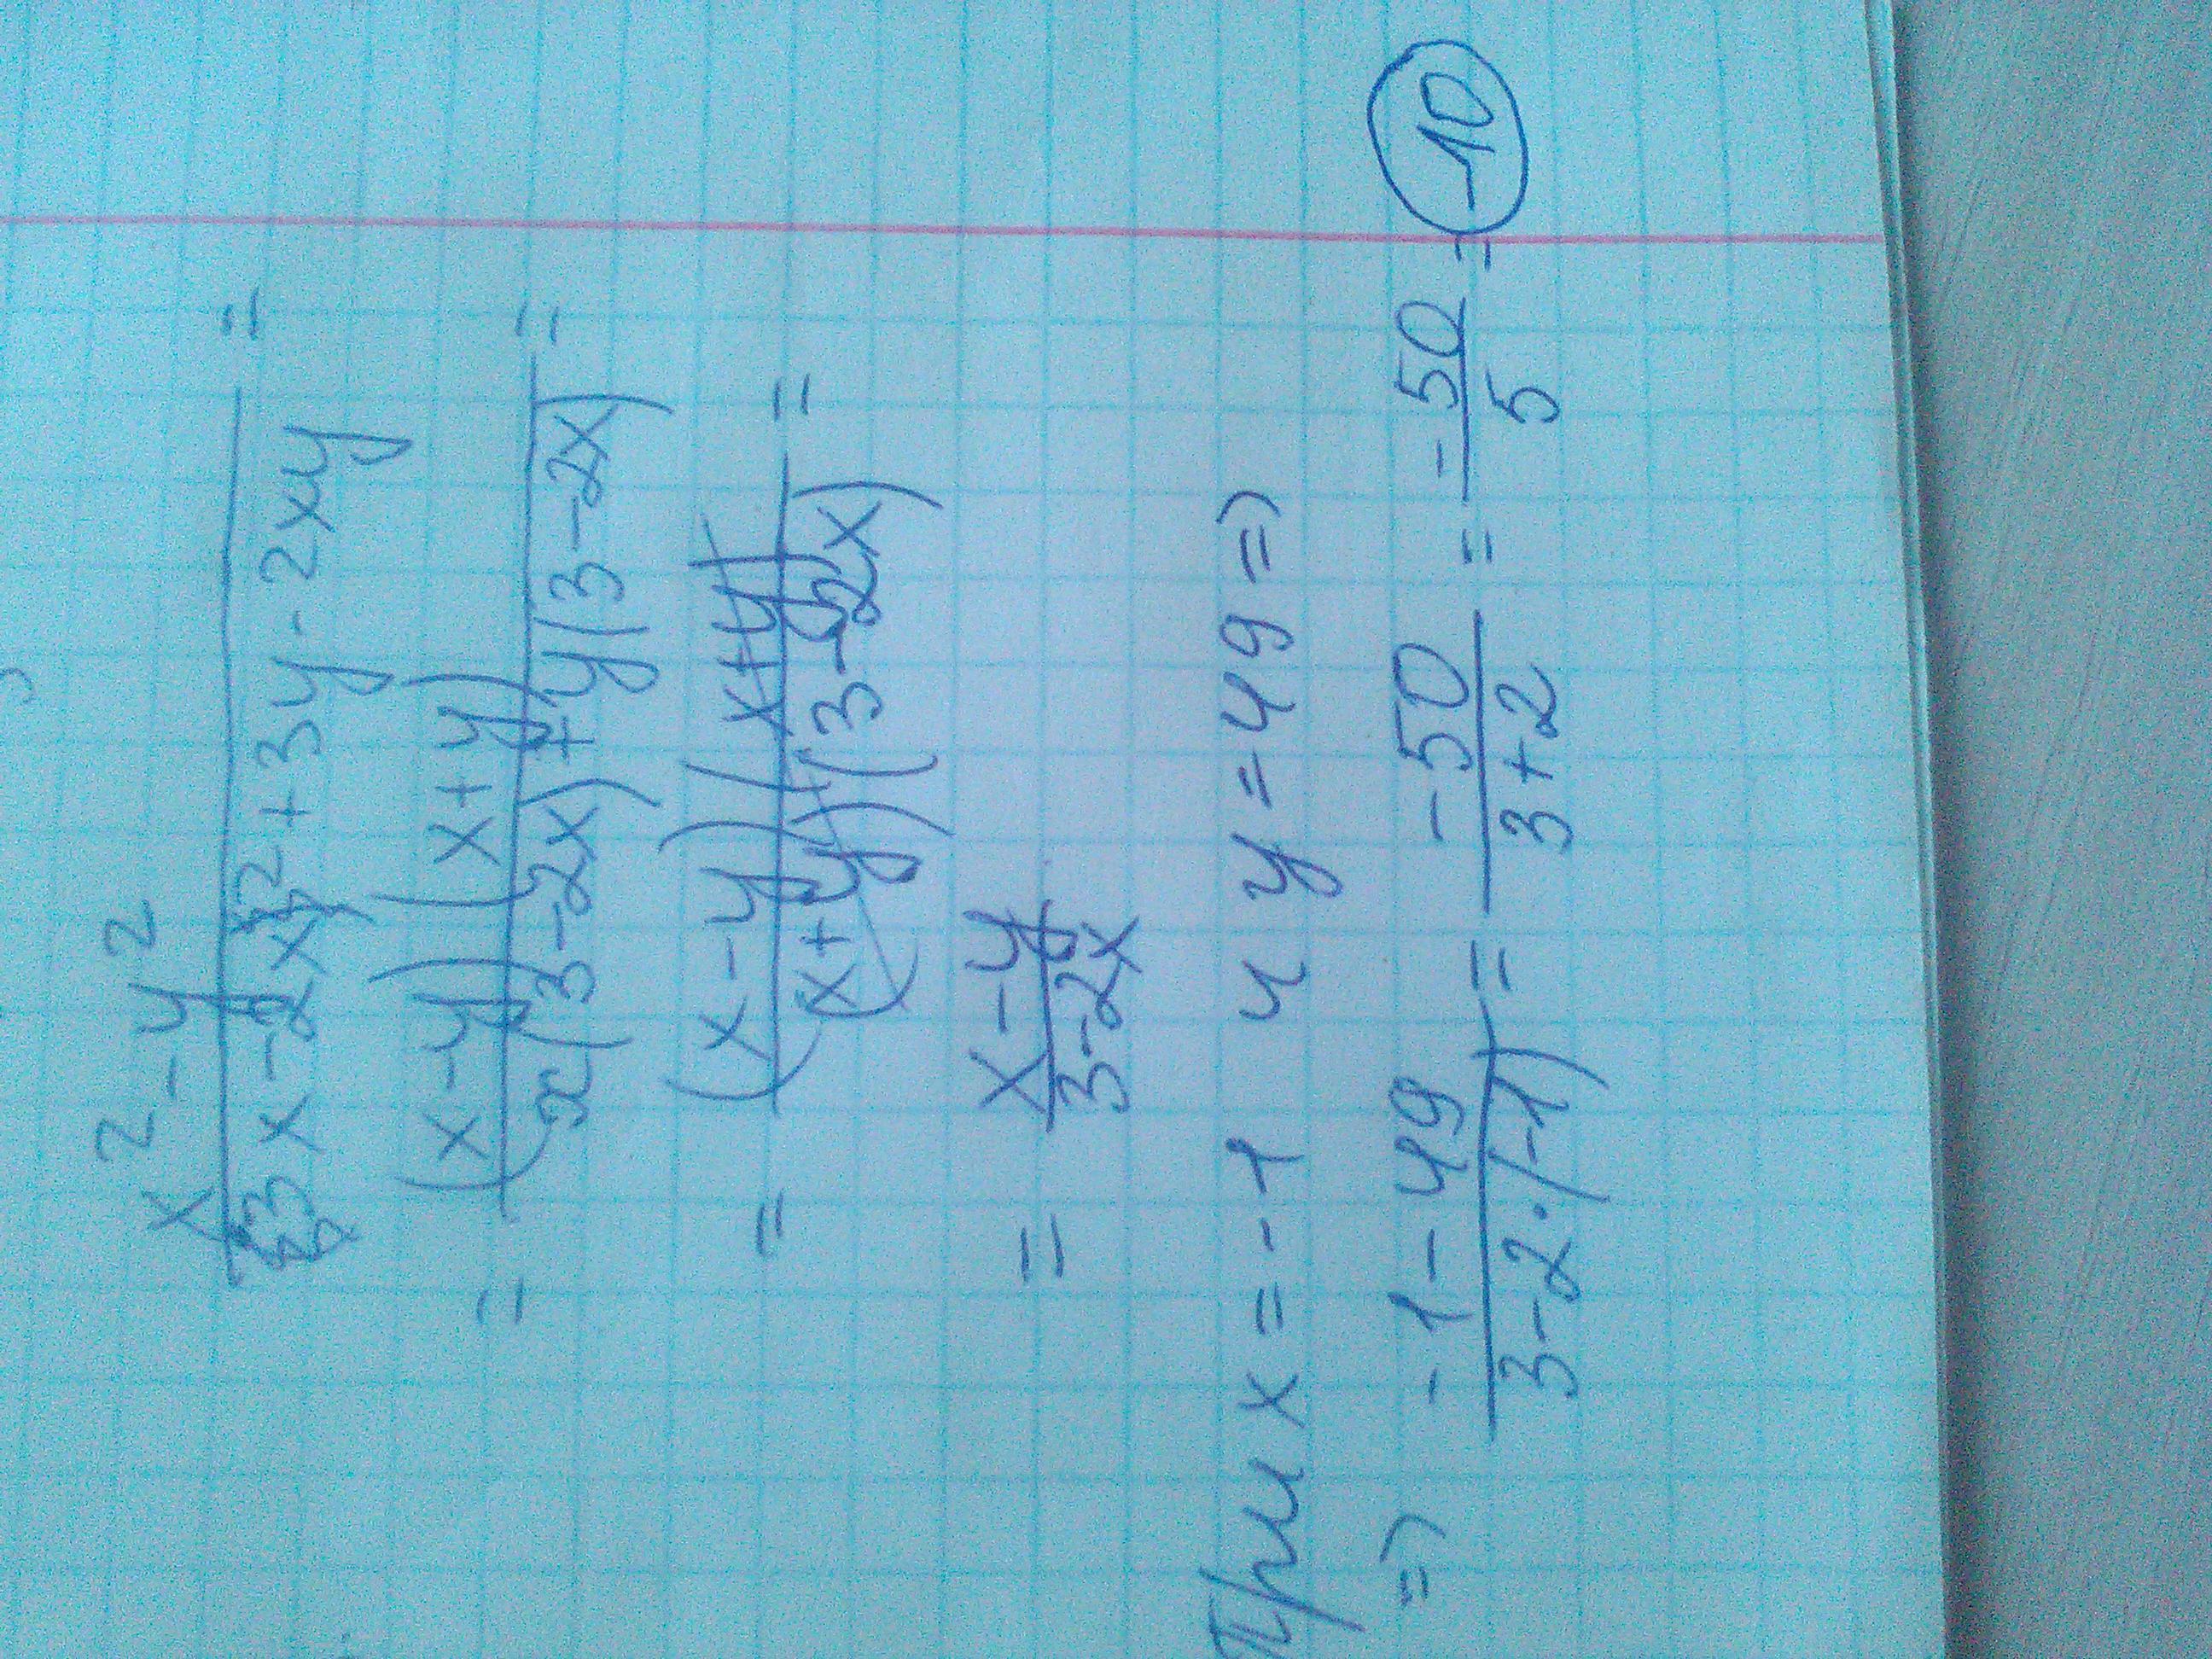 x² - y²
3x - 2x² + 3y - 2xy =
= (x-y)(x+y)
x(3-2x)+y(3-2x) =
= (x-y)(x+y)
(x+y)(3-2x) =
= x-y
3-2x
При x = -1 и y = 49 =>
=> -1-49 / 3-2·(-1) = -50 / 3+2 = -50 / 5 = -10